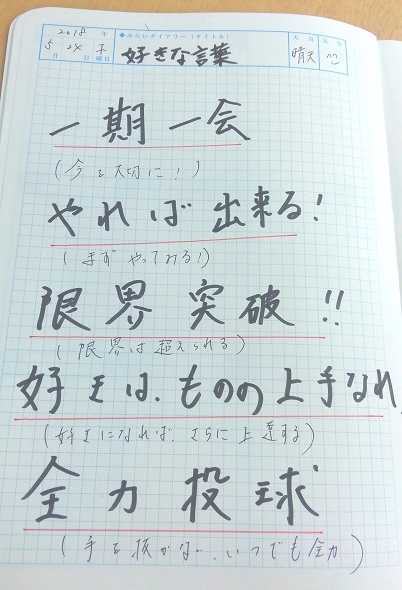 2018年
5月24日木曜日
◆みらいダイアリー(タイトル)
好きな言葉
天気 晴天
気分
一期一会
(今を大切に!)
やれば出来る!
(まずやってみる!)
限界突破!!
(限界は超えられる)
好きは、ものの上手なれ
(好きになれば、さらに上達する)
全力投球
(手を抜かない、いつでも全力)